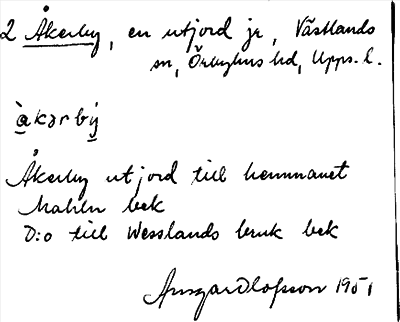 2 Åkerby, en utjord jr, Västlands
sn, Örbyhus hd, Upps. l.
àkərbý
Åkerby utjord till hemmanet
Mahln bek
D:o till Wesslands bruk bek
Ansgar Olofsson 1951